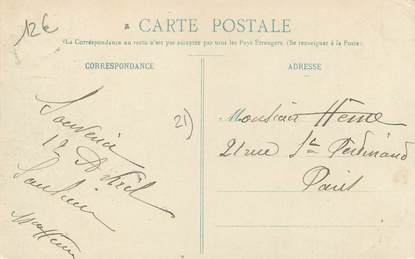 12€
CARTE POSTALE
(La Correspondance au recto n'est pas acceptée par tous les Pays Étrangers. (Se renseigner à la Poste)
CORRESPONDANCE
ADRESSE
Souvenir
21)
Monsieur Hême
21 rue St Ferdinand
Paris